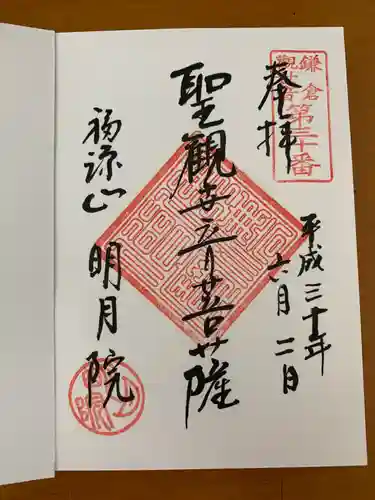 鎌倉
觀音
第三十番
奉拝
平成三十年
六月二日
聖觀世音菩薩
福源山
明月院